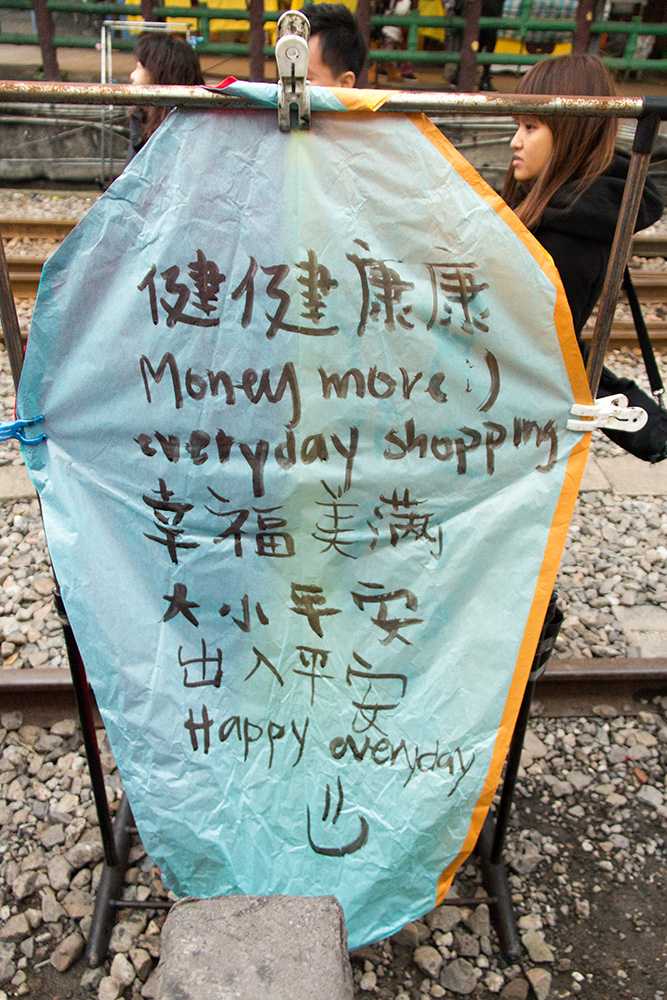 健健康康
Money more :)
everyday shopping
幸福美滿
大小平安
出入平安
Happy everyday